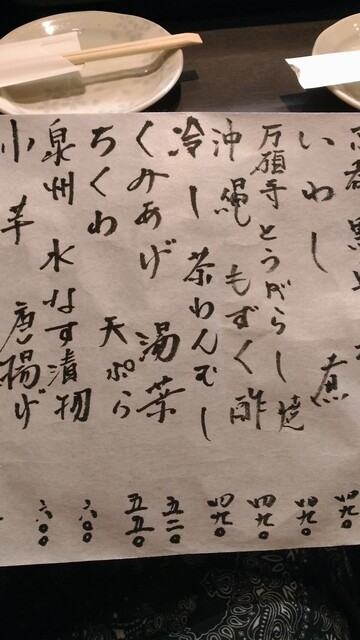 四九〇
いわし 煮 四九〇
万願寺とうがらし焼 四九〇
沖縄もずく酢 四九〇
冷し茶わんむし 五二〇
くみあげ湯葉 五五〇
ちくわ天ぷら 六〇〇
泉州水なす漬物 六〇〇
小芋唐揚げ